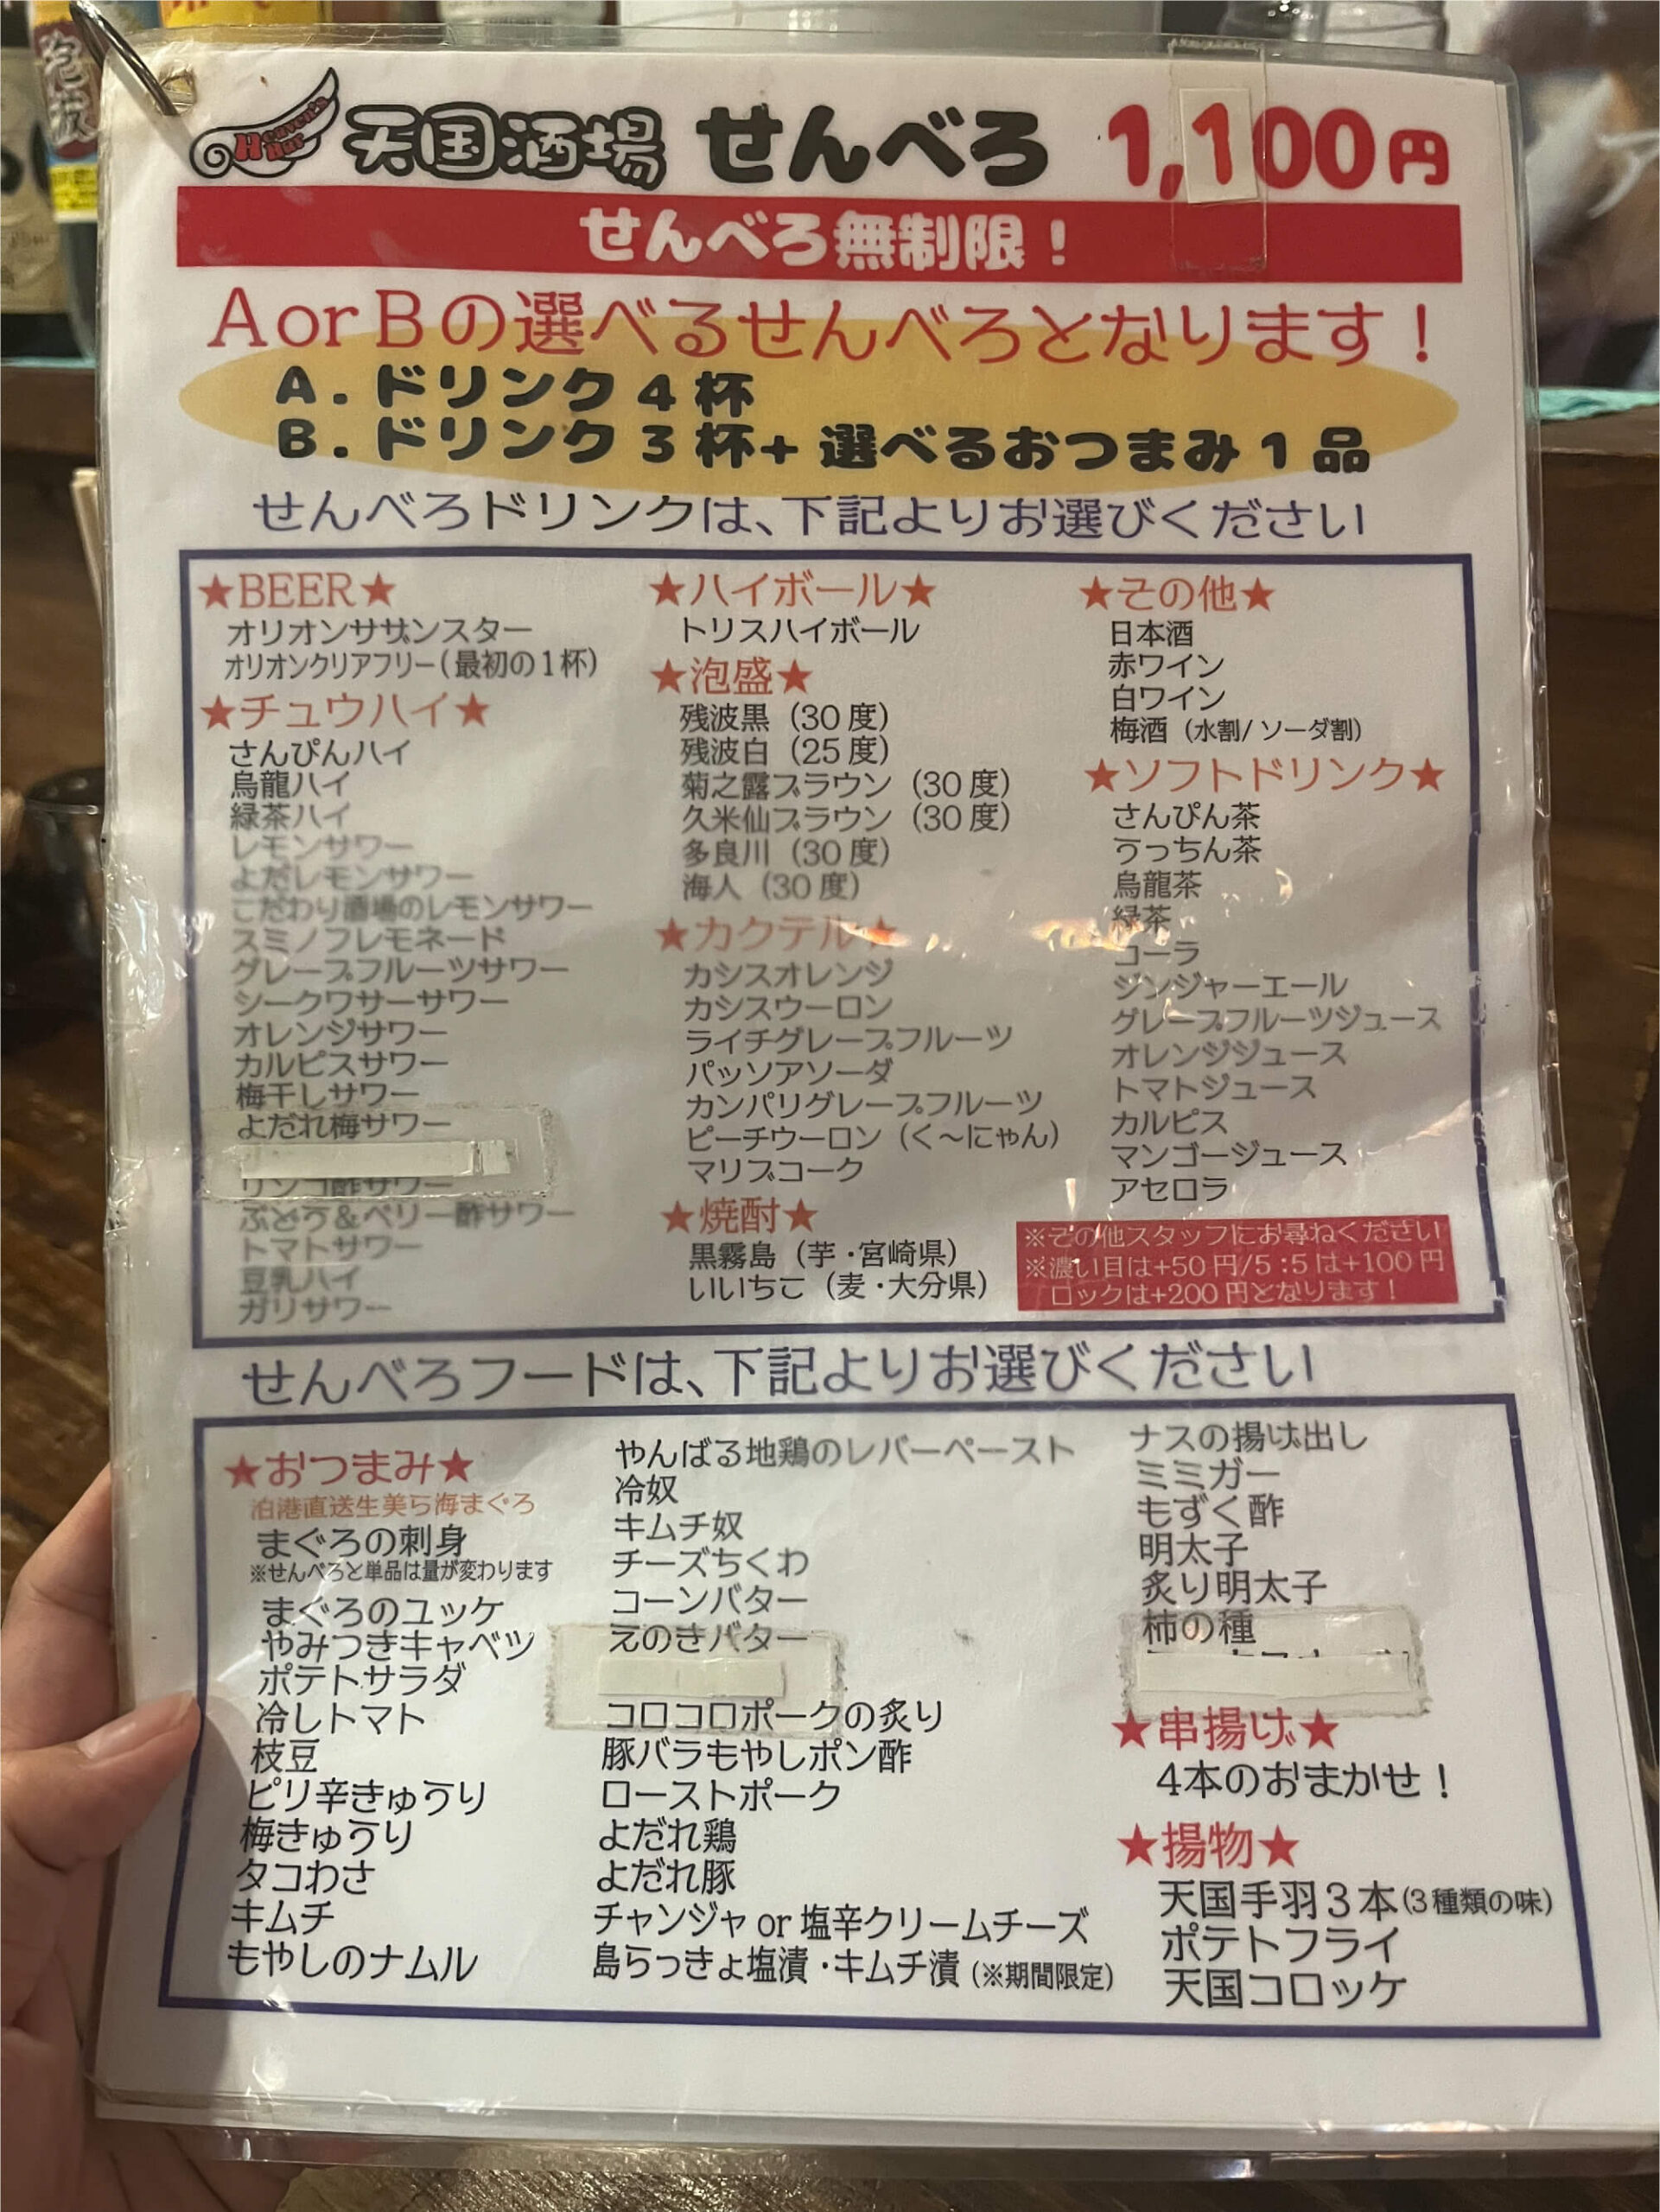 Heaven's Bar
天国酒場 せんべろ 1,100円
せんべろ無制限！
AorBの選べるせんべろとなります！
A．ドリンク4杯
B．ドリンク3杯+選べるおつまみ1品
せんべろドリンクは、下記よりお選びください
★BEER★
オリオンサザンスター
オリオンクリアフリー(最初の1杯)
★チュウハイ★
さんぴんハイ
烏龍ハイ
緑茶ハイ
レモンサワー
よだレモンサワー
こだわり酒場のレモンサワー
スミノフレモネード
グレープフルーツサワー
シークワサーサワー
オレンジサワー
カルピスサワー
梅干しサワー
よだれ梅サワー
リンゴ酢サワー
ぶどう＆ベリー酢サワー
トマトサワー
豆乳ハイ
ガリサワー
★ハイボール★
トリスハイボール
★泡盛★
残波黒（30度）
残波白（25度）
菊之露ブラウン（30度）
久米仙ブラウン（30度）
多良川（30度）
海人（30度）
★カクテル★
カシスオレンジ
カシスウーロン
ライチグレープフルーツ
パッソアソーダ
カンパリグレープフルーツ
ピーチウーロン（く～にゃん）
マリブコーク
★焼酎★
黒霧島（芋・宮崎県）
いいちこ（麦・大分県）
★その他★
日本酒
赤ワイン
白ワイン
梅酒（水割/ソーダ割）
★ソフトドリンク★
さんぴん茶
うっちん茶
烏龍茶
緑茶
コーラ
ジンジャーエール
グレープフルーツジュース
オレンジジュース
トマトジュース
カルピス
マンゴージュース
アセロラ
※その他スタッフにお尋ねください
※濃い目は+50円/5:5は+100円
ロックは+200円となります！
せんべろフードは、下記よりお選びください
★おつまみ★
泊港直送生美ら海まぐろ
まぐろの刺身
※せんべろと単品は量が変わります
まぐろのユッケ
やみつきキャベツ
ポテトサラダ
冷しトマト
枝豆
ピリ辛きゅうり
梅きゅうり
タコわさ
キムチ
もやしのナムル
やんばる地鶏のレバーペースト
冷奴
キムチ奴
チーズちくわ
コーンバター
えのきバター
コロコロポークの炙り
豚バラもやしポン酢
ローストポーク
よだれ鶏
よだれ豚
チャンジャor塩辛クリームチーズ
島らっきょ塩漬・キムチ漬（※期間限定）
ナスの揚げ出し
ミミガー
もずく酢
明太子
炙り明太子
柿の種
★串揚げ★
4本のおまかせ！
★揚物★
天国手羽3本(3種類の味)
ポテトフライ
天国コロッケ